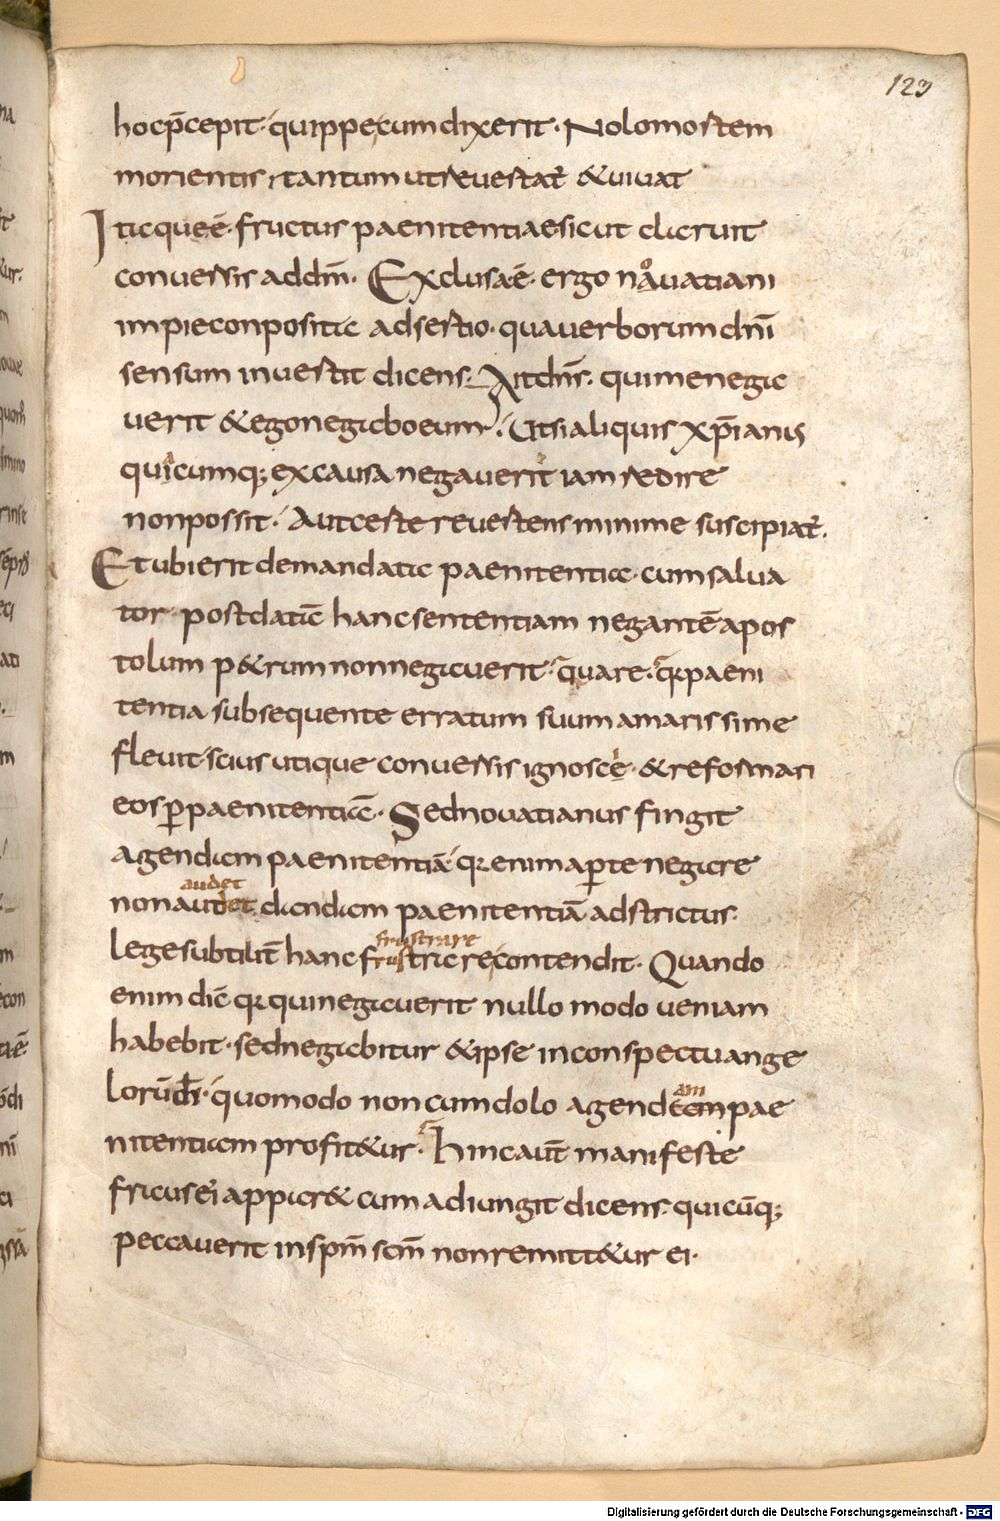 123
hocp̄cepit· quippecumdixerit· Nolomortem
morientis tantum utreuertat̄ &uiuat
Itaqueē· fructus paenitentiaesicut claruit
conuersis addn̄m· Exclusaē· ergo nouatiani
impieconposita adsertio· quauerborumdn̄i
sensum inuertit dicens· Aitdn̄s· quimenega
uerit &egonegaboeum· Utsialiquis xp̄ianus
quacumq; excausa negauerit iam redire
nonpossit· Autcerte reuertens minime suscipiat̄·
Etubierit demandata paenitentia· cumsalua
tor· postdatā hancsententiam negantē apos
tolum p&rum nonnegauerit· quare· q̄ paeni
tentia subsequente erratum suum amarissime
fleuit· scius utique conuersis ignoscere· &reformari
eos p̄paenitentiā· Sednouatianus fingit
agendam paenitentiā· q̄ enimaperte negare
audet
nonaudet dicendam paenitentiā adstrictus·
frustrare
legesubtilit̄ hanc frustrare contendit· Quando
enim dic̄ q̄ quinegauerit nullo modo ueniam
habebit· sednegabitur &ipse inconspectuange
am
lorūdī· quomodo non cumdolo agendam pae
nitentiam profit&ur· hincaut̄ manifeste
frausei appar& cum adiungit dicens· quicūq;
peccauerit inspm̄ scm̄ nonremitt&ur ei·
Digitalisierung gefördert durch die Deutsche Forschungsgemeinschaft - DFG